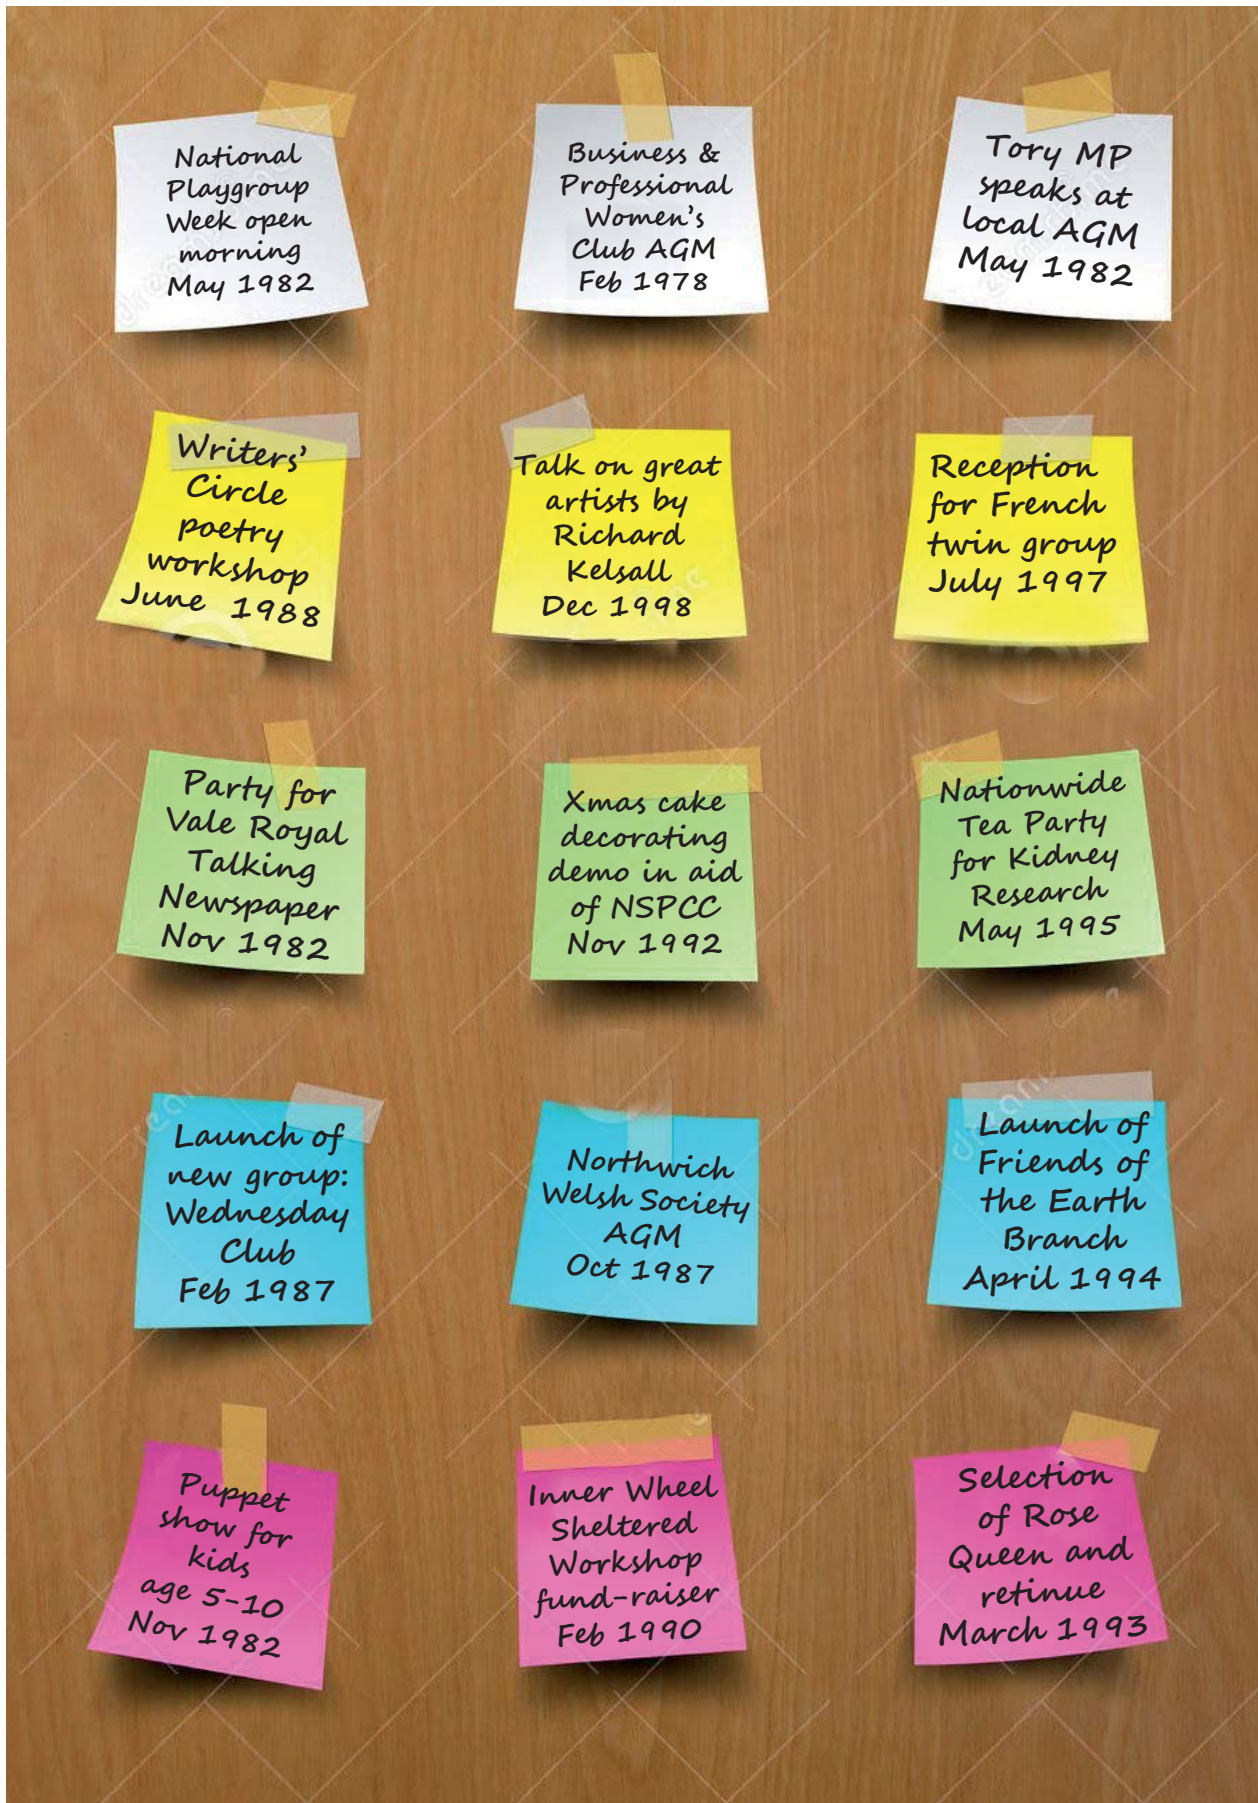 National
Playgroup
Week open
morning
May 1982
Business &
Professional
Women's
Club AGM
Feb 1978
Tory MP
speaks at
local AGM
May 1982
Writers'
Circle
poetry
workshop
June 1988
Talk on great
artists by
Richard
Kelsall
Dec 1998
Reception
for French
twin group
July 1997
Party for
Vale Royal
Talking
Newspaper
Nov 1982
Xmas cake
decorating
demo in aid
of NSPCC
Nov 1992
Nationwide
Tea Party
for Kidney
Research
May 1995
Launch of
new group:
Wednesday
Club
Feb 1987
Northwich
Welsh Society
AGM
Oct 1987
Launch of
Friends of
the Earth
Branch
April 1994
Puppet
show for
kids
age 5-10
Nov 1982
Inner Wheel
Sheltered
Workshop
fund-raiser
Feb 1990
Selection
of Rose
Queen and
retinue
March 1993